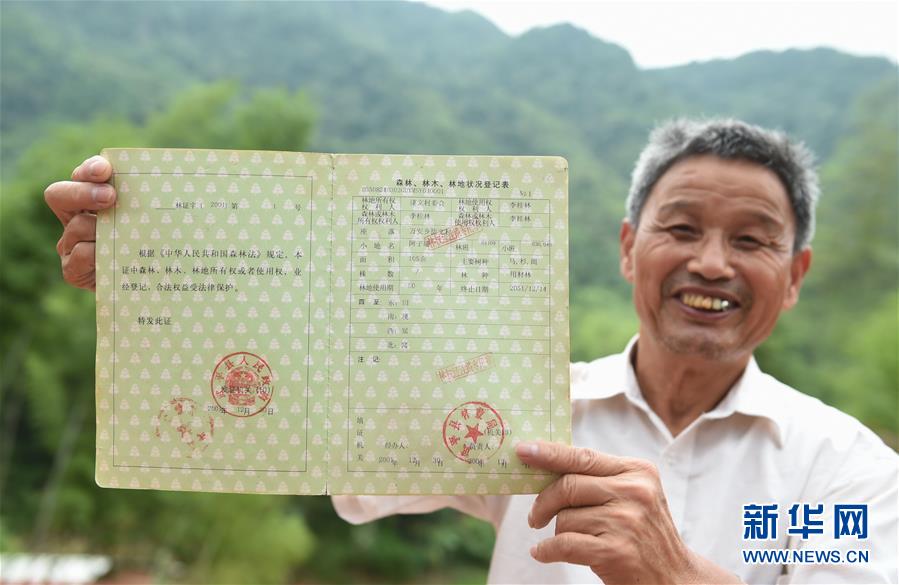 林证字（2001）第 1 号
根据《中华人民共和国森林法》规定，本
证中森林、林木、林地所有权或者使用权，业
经登记，合法权益受法律保护。
特发此证
发证机关（印）
2001年 12月 日
森林、林木、林地状况登记表
№1
林地所有权权利人 捷文村委会 林地使用权权利人 李桂林
森林或林木所有权权利人 李桂林 森林或林木使用权权利人 李桂林
座落 万安乡捷文村
小地名 林班 小班
面积 105亩 主要树种 马、杉、阔
株数 / 林种 用材林
林地使用期 50 年 终止日期 2051/12/14
四至 东:
南:
西:
北:
注记:
填证机关
（机关印）
经办人: 负责人:
2001年 12月 30日
新华网
WWW.NEWS.CN